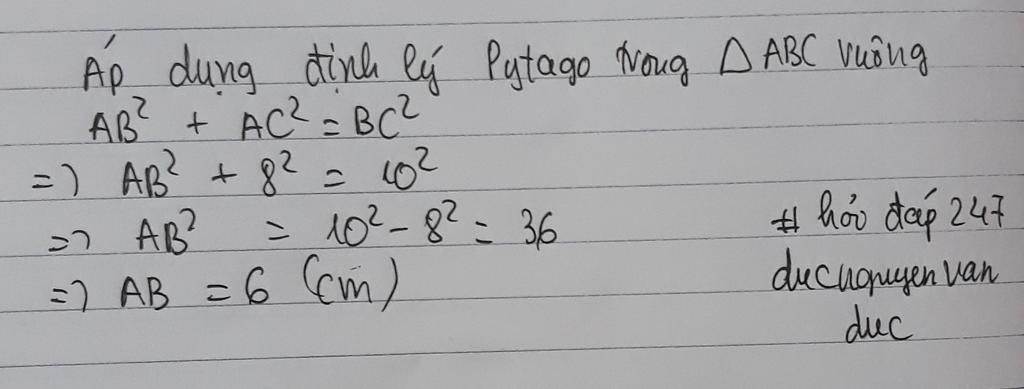 Áp dụng định lý Pytago trong Δ ABC vuông
AB² + AC² = BC²
=> AB² + 8² = 10²
=> AB² = 10² - 8² = 36
=> AB = 6 (cm)
# hỏi đáp 247
ducnguyenvan
duc